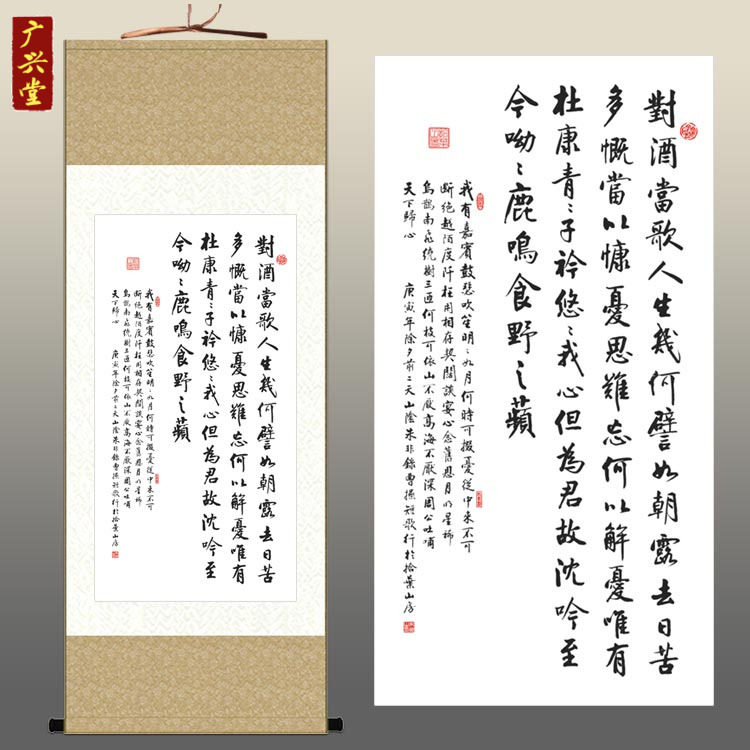 广兴堂
對酒當歌人生幾何譬如朝露去日苦
多慨當以慷憂思難忘何以解憂唯有
杜康青〻子衿悠〻我心但為君故沈吟至
今呦〻鹿鳴食野之蘋
我有嘉賓鼓瑟吹笙明〻如月何時可掇憂從中來不可
断絕越陌度阡枉用相存契闊談宴心念舊恩月明星稀
烏鵲南飛繞樹三匝何枝可依山不厭高海不厭深周公吐哺
天下歸心 庚寅年除夕前二天山陰朱非錄曹操短歌行於拾葉山房
對酒當歌人生幾何譬如朝露去日苦
多慨當以慷憂思難忘何以解憂唯有
杜康青〻子衿悠〻我心但為君故沈吟至
今呦〻鹿鳴食野之蘋
我有嘉賓鼓瑟吹笙明〻如月何時可掇憂從中來不可
断絕越陌度阡枉用相存契闊談宴心念舊恩月明星稀
烏鵲南飛繞樹三匝何枝可依山不厭高海不厭深周公吐哺
天下歸心 庚寅年除夕前二天山陰朱非錄曹操短歌行於拾葉山房